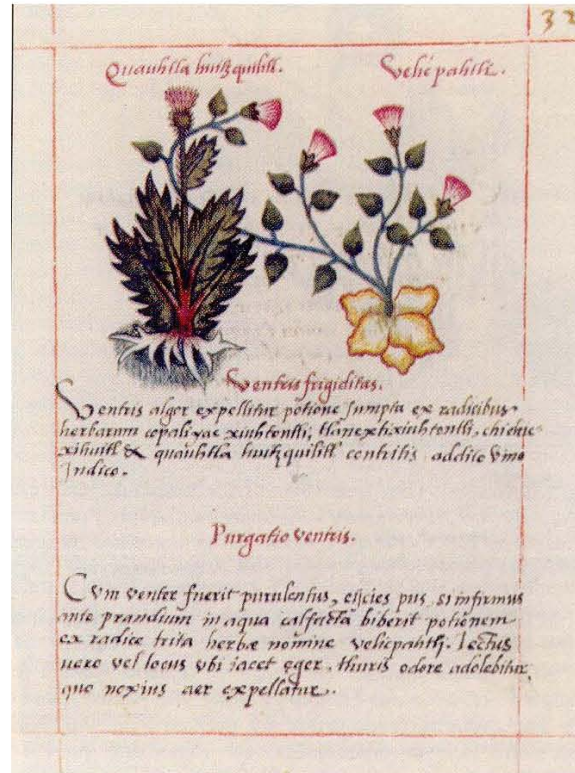 32
Quauhtla huitzquilitl. Velicpahtli.
Ventris frigiditas.
Ventris algor expellitur potione sumpta ex radicibus
herbarum copaliyac xiuhtontli, tlanextixiuhtontli, chichic
xihuitl & quauhtla huitzquilitl contritis addito vino
Indico.
Purgatio ventris.
Cum venter fuerit purulentus, eijcies pus, si infirmus
ante prandium in aqua calfacta biberit potionem
ex radice trita herbæ nomine velicpahtli. lectus
uero vel locus vbi iacet eger, thuris odore adolebitur,
quo noxius aer expellatur.